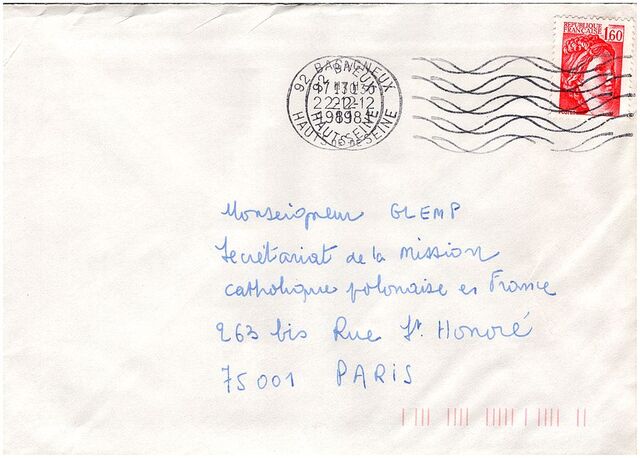 REPUBLIQUE
FRANÇAISE 1,60
92 BAGNEUX
22-12
1981
HAUTS DE SEINE
Monseigneur GLEMP
Secrétariat de la Mission
catholique polonaise en France
263 bis Rue St Honoré
75001 PARIS